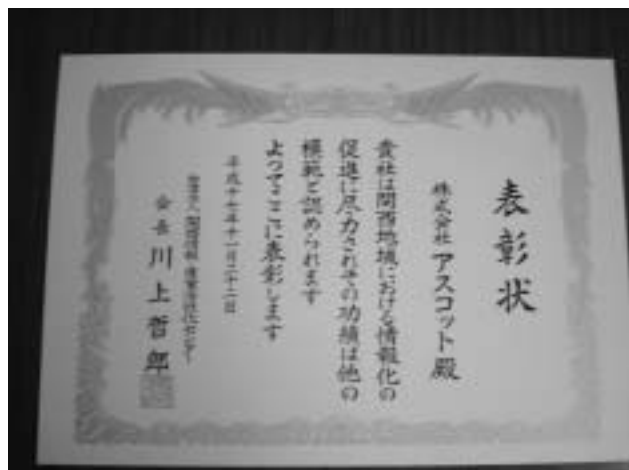 表彰状
株式会社 アスコット殿
貴社は関西地域における情報化の
促進に尽力されその功績は他の
模範と認められます
よってここに表彰します
平成十七年十一月二十二日
財団法人 関西情報・産業活性化センター
会長 川上哲郎